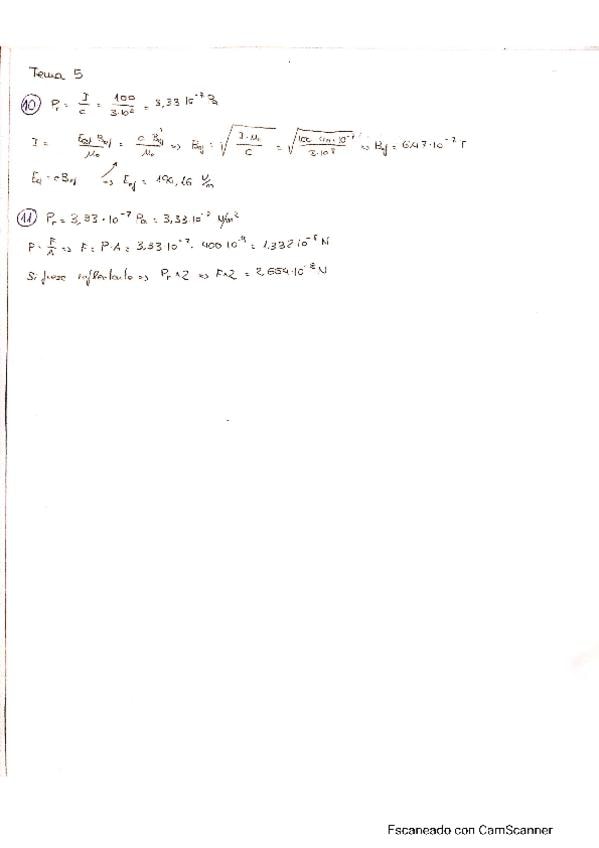 Tema 5
10 Pr = I/c = 100/3·10⁸ = 3,33 10⁻⁷ Pa
I = Eef Bef/μ₀ = c B²ef/μ₀ => Bef = √(I·μ₀/c) = √(100 4π·10⁻⁷/3·10⁸) => Bef = 6,47·10⁻⁷ T
Eef = c Bef => Eef = 194,16 V/m
11 Pr = 3,33·10⁻⁷ Pa = 3,33·10⁻⁷ N/m²
P = F/A => F = P·A = 3,33·10⁻⁷ · 400 10⁻⁴ = 1,332 10⁻⁸ N
Si fuese reflectante => Pr × 2 => F×2 = 2,664·10⁻⁸ N
Escaneado con CamScanner